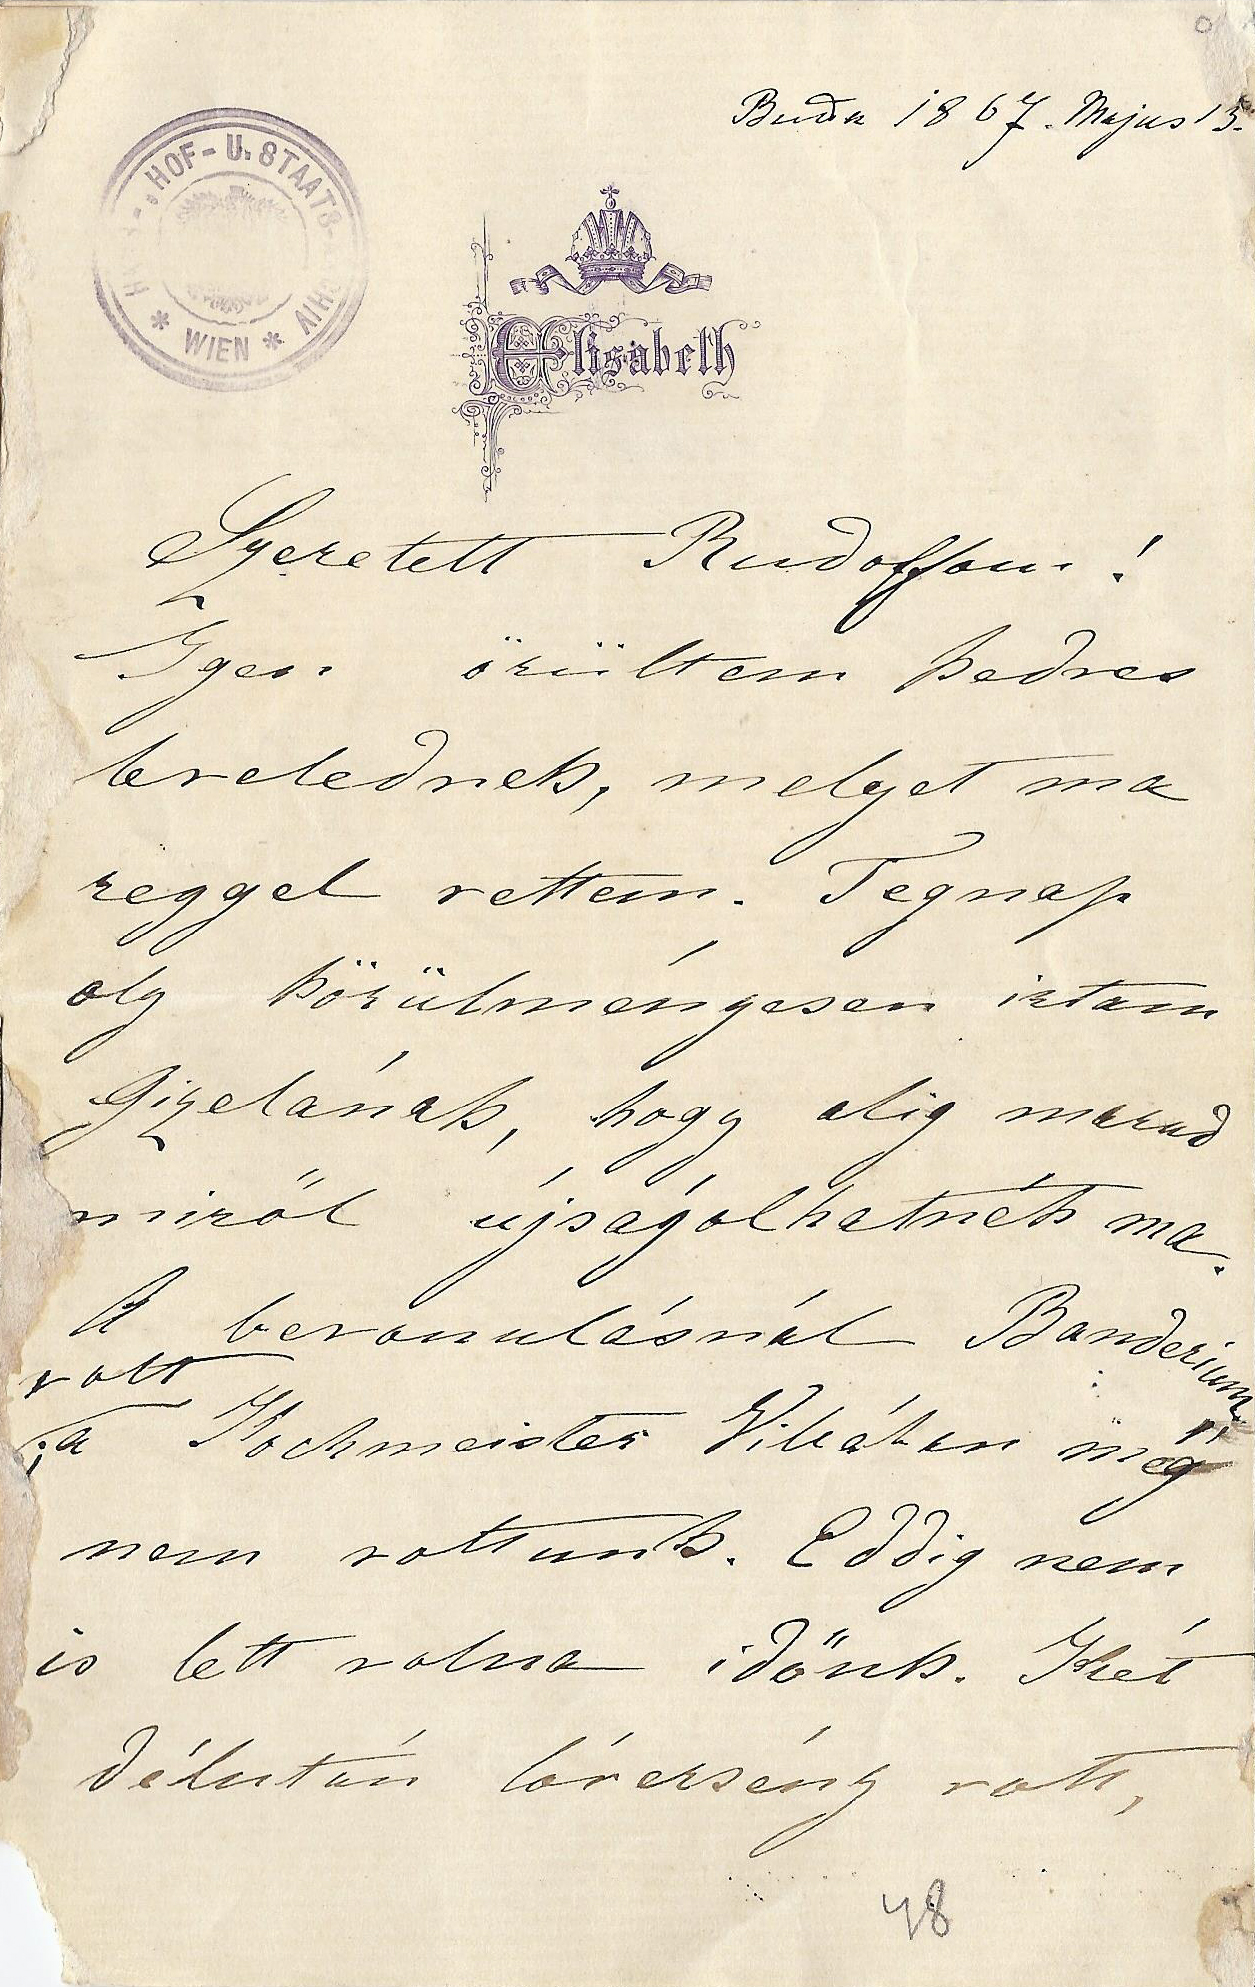 Buda 1867. Majus 13.
HOF- U. STAATS-
* WIEN *
Elisabeth
Szeretett Rudolfom!
Igen örültem kedves
levelednek, melyet ma
reggel vettem. Tegnap
oly körülményesen irtam
Gizelának, hogy alig marad
miröl újságólhatnék ma.
A bevonulásnál Banderium
volt
a Kochmeister Villában még
nem voltunk. Eddig nem
is lett volna idönk. Két
délután lóverseny volt,
48